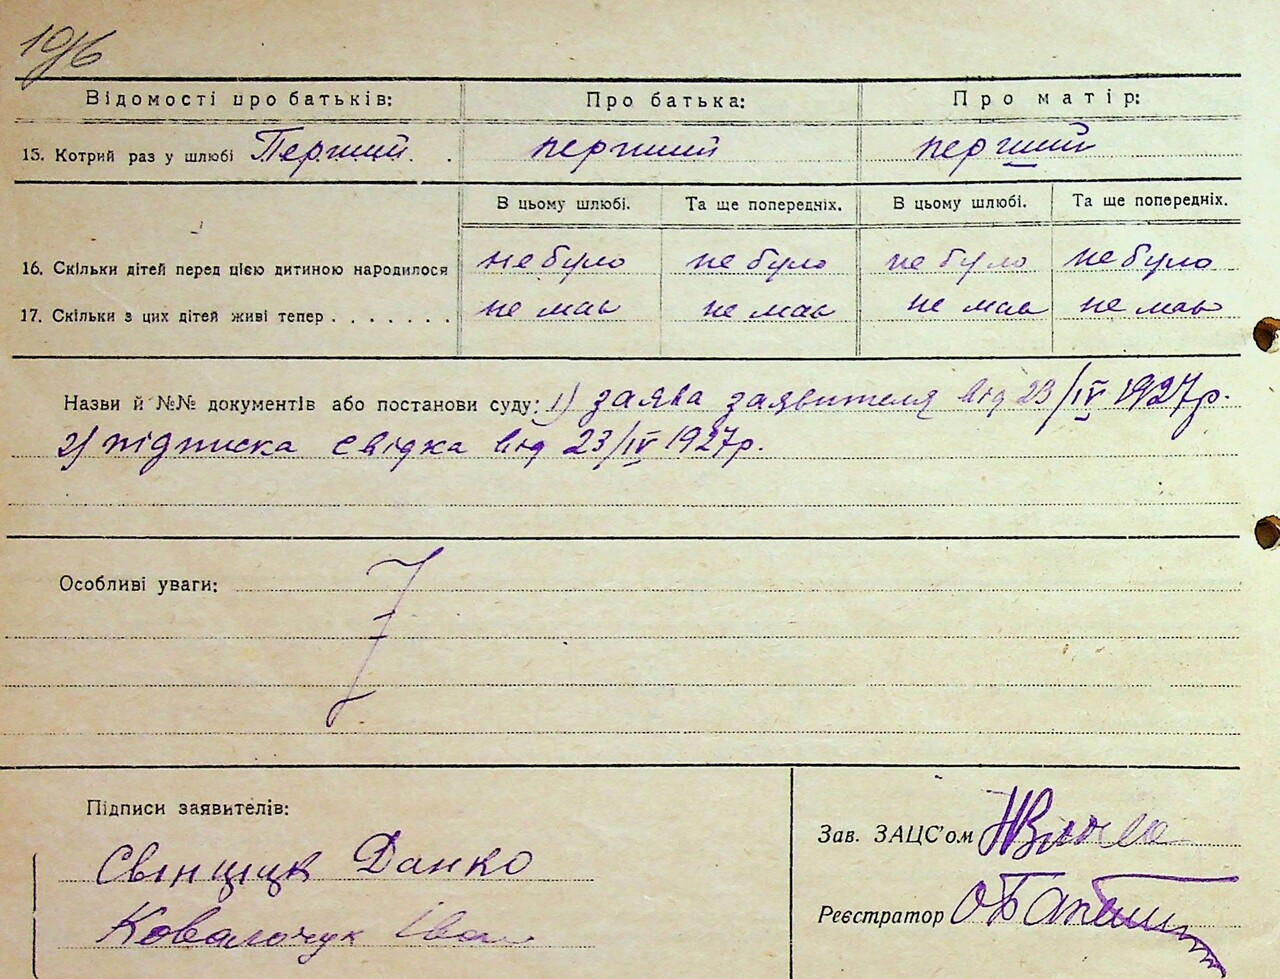 Відомості про батьків: Про батька: Про матір:
15. Котрий раз у шлюбі Перший. . перший перший
В цьому шлюбі. Та ще попередніх. В цьому шлюбі. Та ще попередніх.
16. Скільки дітей перед цією дитиною народилося не було не було не було не було
17. Скільки з цих дітей живі тепер . . . . . . . не має не має не має не має
Назви й №№ документів або постанови суду: 1) заява заявителя від 23/IV 1927р.
2) підписка свідка від 23/IV 1927р.
Особливі уваги:
Підписи заявителів:
Зав. ЗАЦС'ом
Свінціцк Данко
Реєстратор
Ковальчук Іван